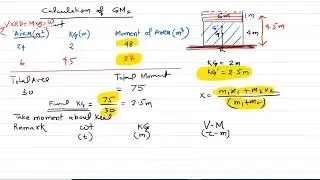 Calculation of GMf
Area(m²) KG(m) Moment of Area(m³)
24 2 48
6 4.5 27
Total Area Total Moment
30 = 75
Final KG = 75/30 = 2.5m
Take moment about Keel
Remark wt KG V-M
(t) (m) (t-m)
6m
1m
4m
K
KG = 2m
KG' = 2.5m
x = m₁x₁ + m₂x₂
(m₁+m₂)